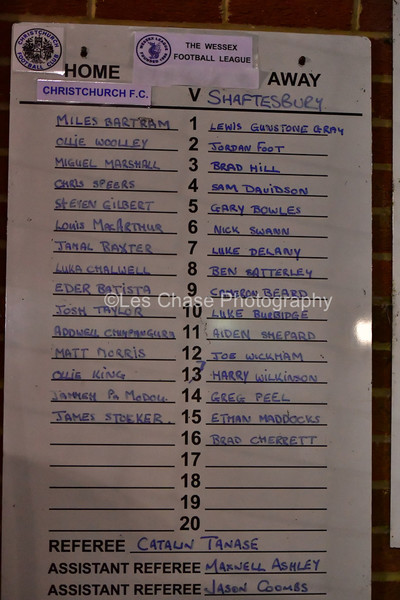 CHRISTCHURCH
FOOTBALL CLUB
THE WESSEX
FOOTBALL LEAGUE
HOME AWAY
CHRISTCHURCH F.C. V SHAFTESBURY
MILES BARTRAM 1 LEWIS GUNSTONE GRAY
OLLIE WOOLLEY 2 JORDAN FOOT
MIGUEL MARSHALL 3 BRAD HILL
CHRIS SPEERS 4 SAM DAVIDSON
STEVEN GILBERT 5 GARY BOWLES
LOUIS MACARTHUR 6 NICK SWANN
JAMAL BAXTER 7 LUKE DELANY
LUKA CHALWELL 8 BEN SATTERLEY
EDER BATISTA 9 CAMERON BEARD
©Les Chase Photography
JOSH TAYLOR 10 LUKE BURBIDGE
11 AIDEN SHEPARD
MATT MORRIS 12 JOE WICKHAM
OLLIE KING 13 HARRY WILKINSON
PA MODOU 14 GREG PEEL
JAMES STOKER. 15 ETHAN MADDOCKS
16 BRAD CHERRETT
17
18
19
20
REFEREE CATALIN TANASE
ASSISTANT REFEREE MAXWELL ASHLEY
ASSISTANT REFEREE JASON COOMBS